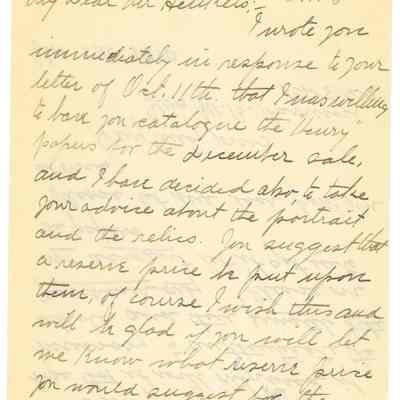 My Dear Mr Henkels:-
I wrote you
immediately in response to your
letter of Oct. 11th. that I was willing
to have you catalogue the "Henry"
papers for the december sale,
and I have decided also, to take
your advice about the portrait
and the relics. You suggest that
a reserve price be put upon
them, of course I wish this and
will be glad if you will let
me know what reserve price
you would suggest for the